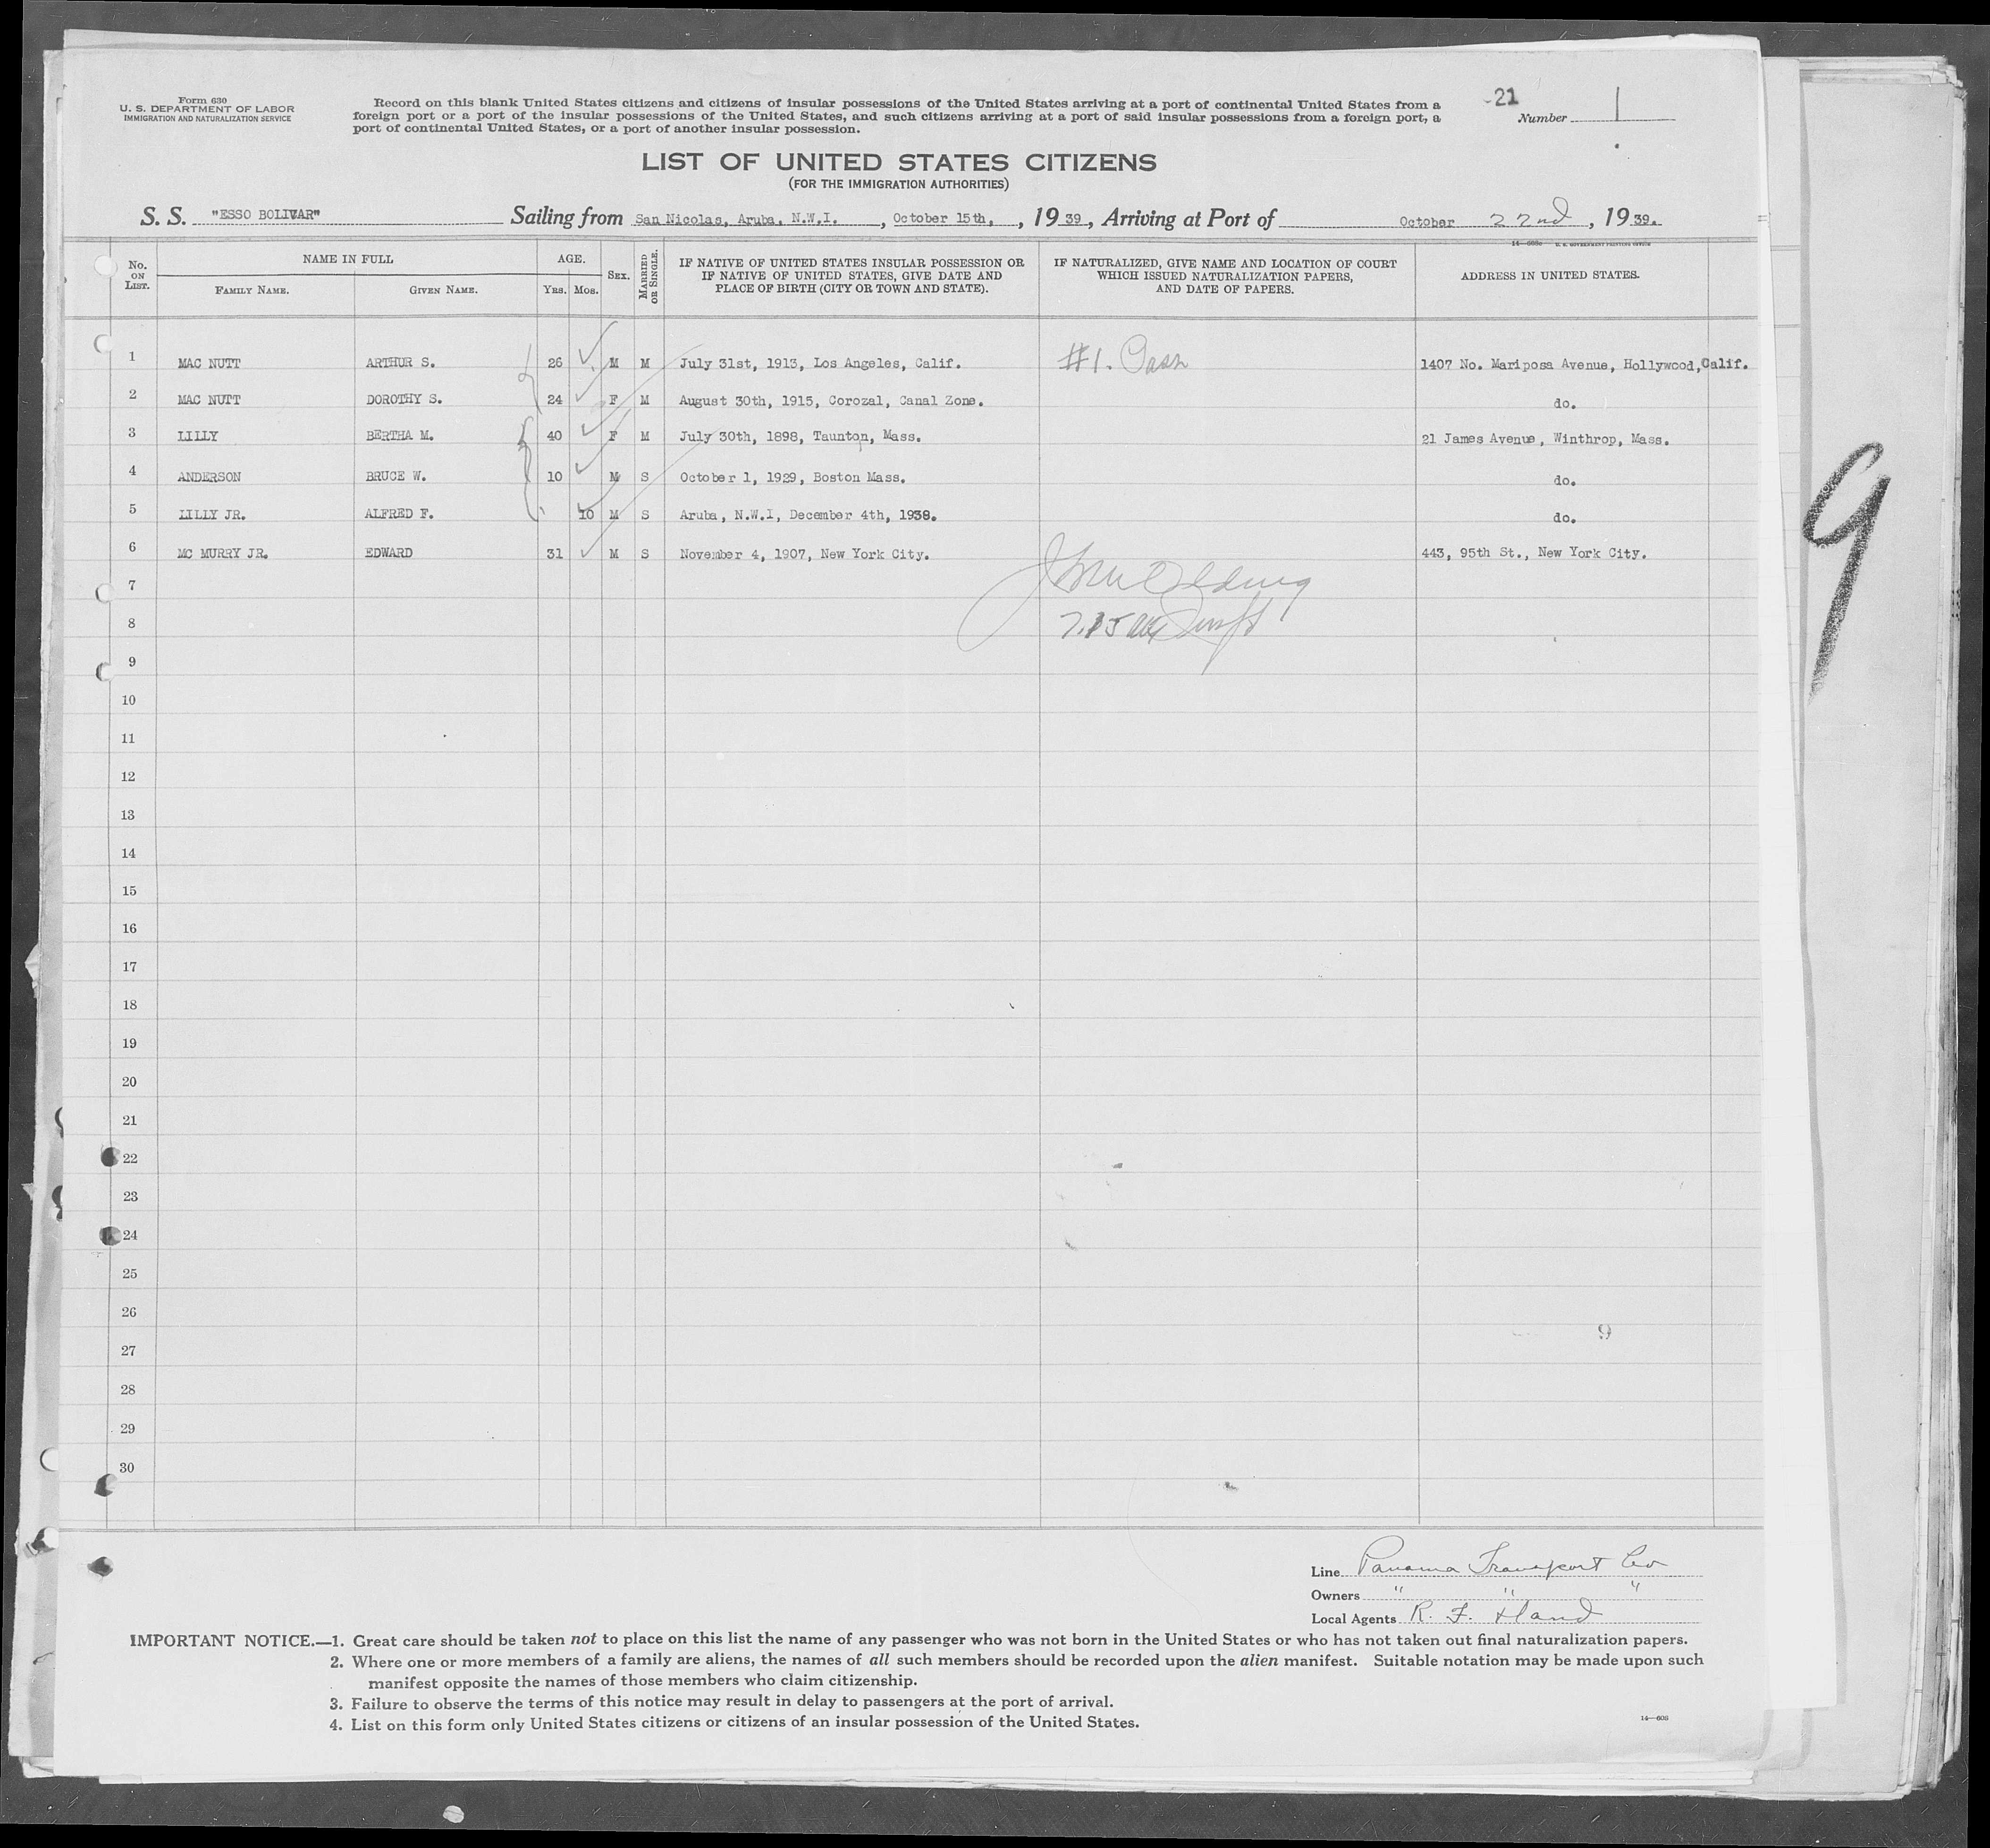 Form 630
U. S. DEPARTMENT OF LABOR
IMMIGRATION AND NATURALIZATION SERVICE
Record on this blank United States citizens and citizens of insular possessions of the United States arriving at a port of continental United States from a
foreign port or a port of the insular possessions of the United States, and such citizens arriving at a port of said insular possessions from a foreign port, a
port of continental United States, or a port of another insular possession.
-21
Number 1
LIST OF UNITED STATES CITIZENS
(FOR THE IMMIGRATION AUTHORITIES)
S. S. "ESSO BOLIVAR" Sailing from San Nicolas, Aruba, N.W.I. , October 15th, , 19 39 , Arriving at Port of October 22nd , 19 39.
No. ON LIST. NAME IN FULL AGE. SEX. MARRIED OR SINGLE. IF NATIVE OF UNITED STATES INSULAR POSSESSION OR IF NATIVE OF UNITED STATES, GIVE DATE AND PLACE OF BIRTH (CITY OR TOWN AND STATE). IF NATURALIZED, GIVE NAME AND LOCATION OF COURT WHICH ISSUED NATURALIZATION PAPERS, AND DATE OF PAPERS. ADDRESS IN UNITED STATES.
FAMILY NAME. GIVEN NAME. YRS. MOS.
1 MAC NUTT ARTHUR S. 26 M M July 31st, 1913, Los Angeles, Calif. #1. 1407 No. Mariposa Avenue, Hollywood, Calif.
2 MAC NUTT DOROTHY S. 24 F M August 30th, 1915, Corozal, Canal Zone. do.
3 LILLY BERTHA M. 40 F M July 30th, 1898, Taunton, Mass. 21 James Avenue, Winthrop, Mass.
4 ANDERSON BRUCE W. 10 M S October 1, 1929, Boston Mass. do.
5 LILLY JR. ALFRED F. 10 M S Aruba, N.W.I, December 4th, 1938. do.
6 MC MURRY JR. EDWARD 31 M S November 4, 1907, New York City. 443, 95th St., New York City.
7
8
9
10
11
12
13
14
15
16
17
18
19
20
21
22
23
24
25
26
27
28
29
30
9
9
Line Panama Transport Co
Owners " " "
Local Agents R. F. Hand
IMPORTANT NOTICE.—1. Great care should be taken not to place on this list the name of any passenger who was not born in the United States or who has not taken out final naturalization papers.
2. Where one or more members of a family are aliens, the names of all such members should be recorded upon the alien manifest. Suitable notation may be made upon such
manifest opposite the names of those members who claim citizenship.
3. Failure to observe the terms of this notice may result in delay to passengers at the port of arrival.
4. List on this form only United States citizens or citizens of an insular possession of the United States.
14—608